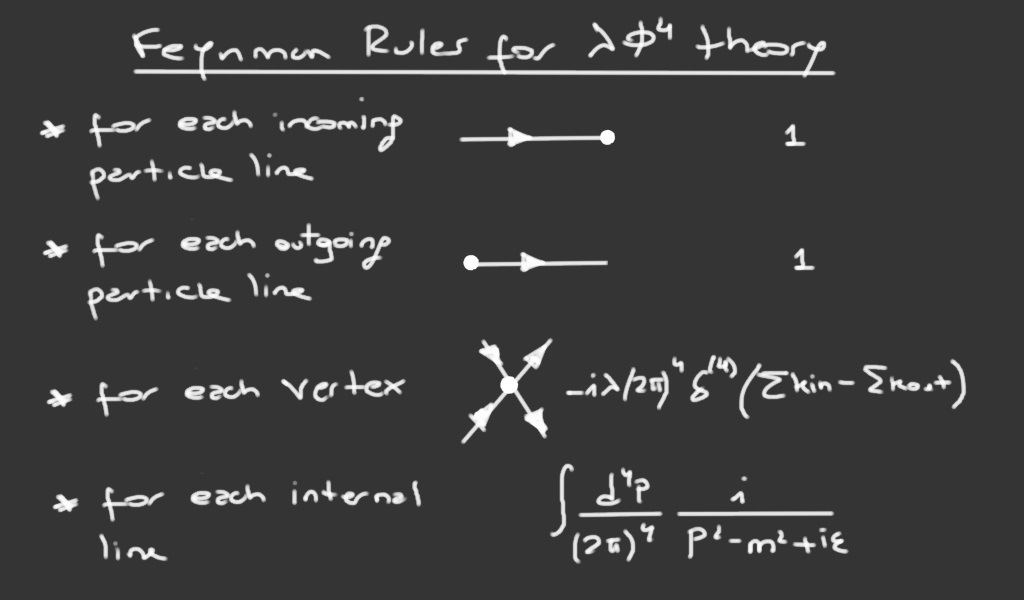 Feynman Rules for λϕ⁴ theory
* for each incoming 1
particle line
* for each outgoing 1
particle line
* for each vertex -iλ(2π)⁴ δ⁽⁴⁾(Σkin - Σkout)
* for each internal ∫ d⁴p/(2π)⁴ i/(p²-m²+iε)
line